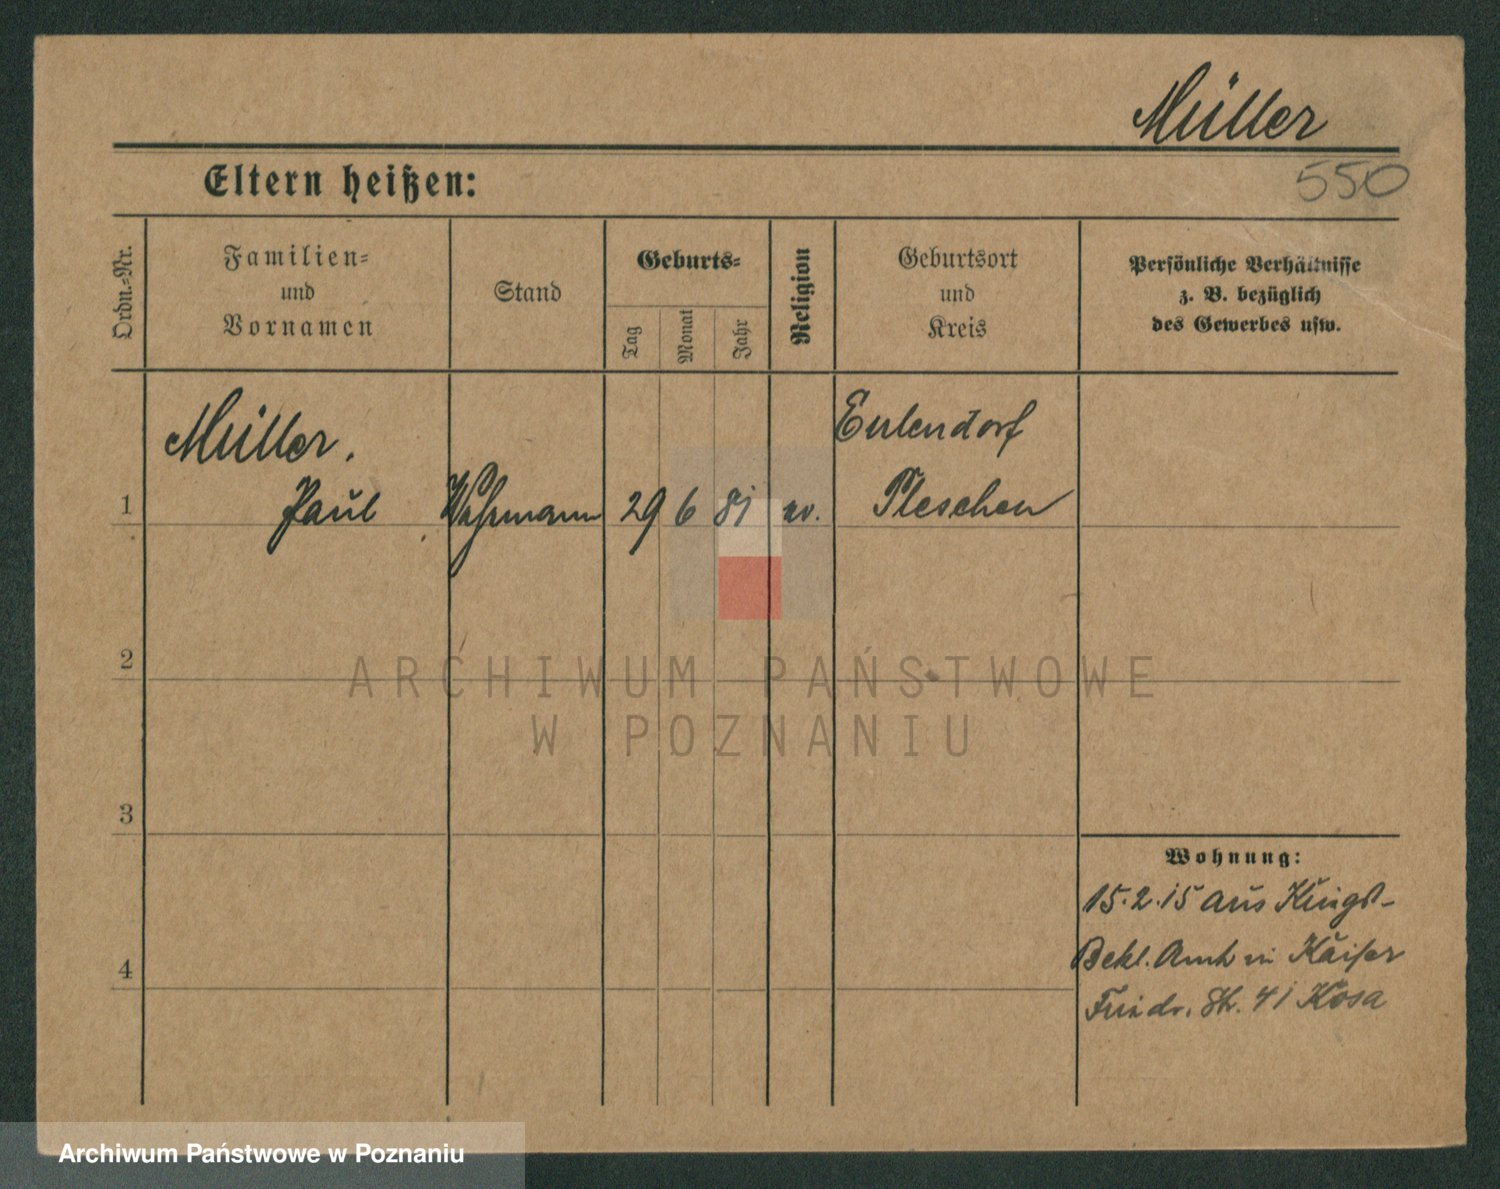 Müller
550
Eltern heißen:
Ordn.-Nr.
Familien-
und
Vornamen
Stand
Geburts-
Tag
Monat
Jahr
Religion
Geburtsort
und
Kreis
Persönliche Verhältnisse
z. B. bezüglich
des Gewerbes usw.
Müller,
Eulendorf
1 Paul Wehrmann 29 6 81 ev. Pleschen
2
ARCHIWUM PAŃSTWOWE
W POZNANIU
3
Wohnung:
15.2.15 aus
4
Bekl. Amt in Kaiser
Friedr. Str. 41
Archiwum Państwowe w Poznaniu